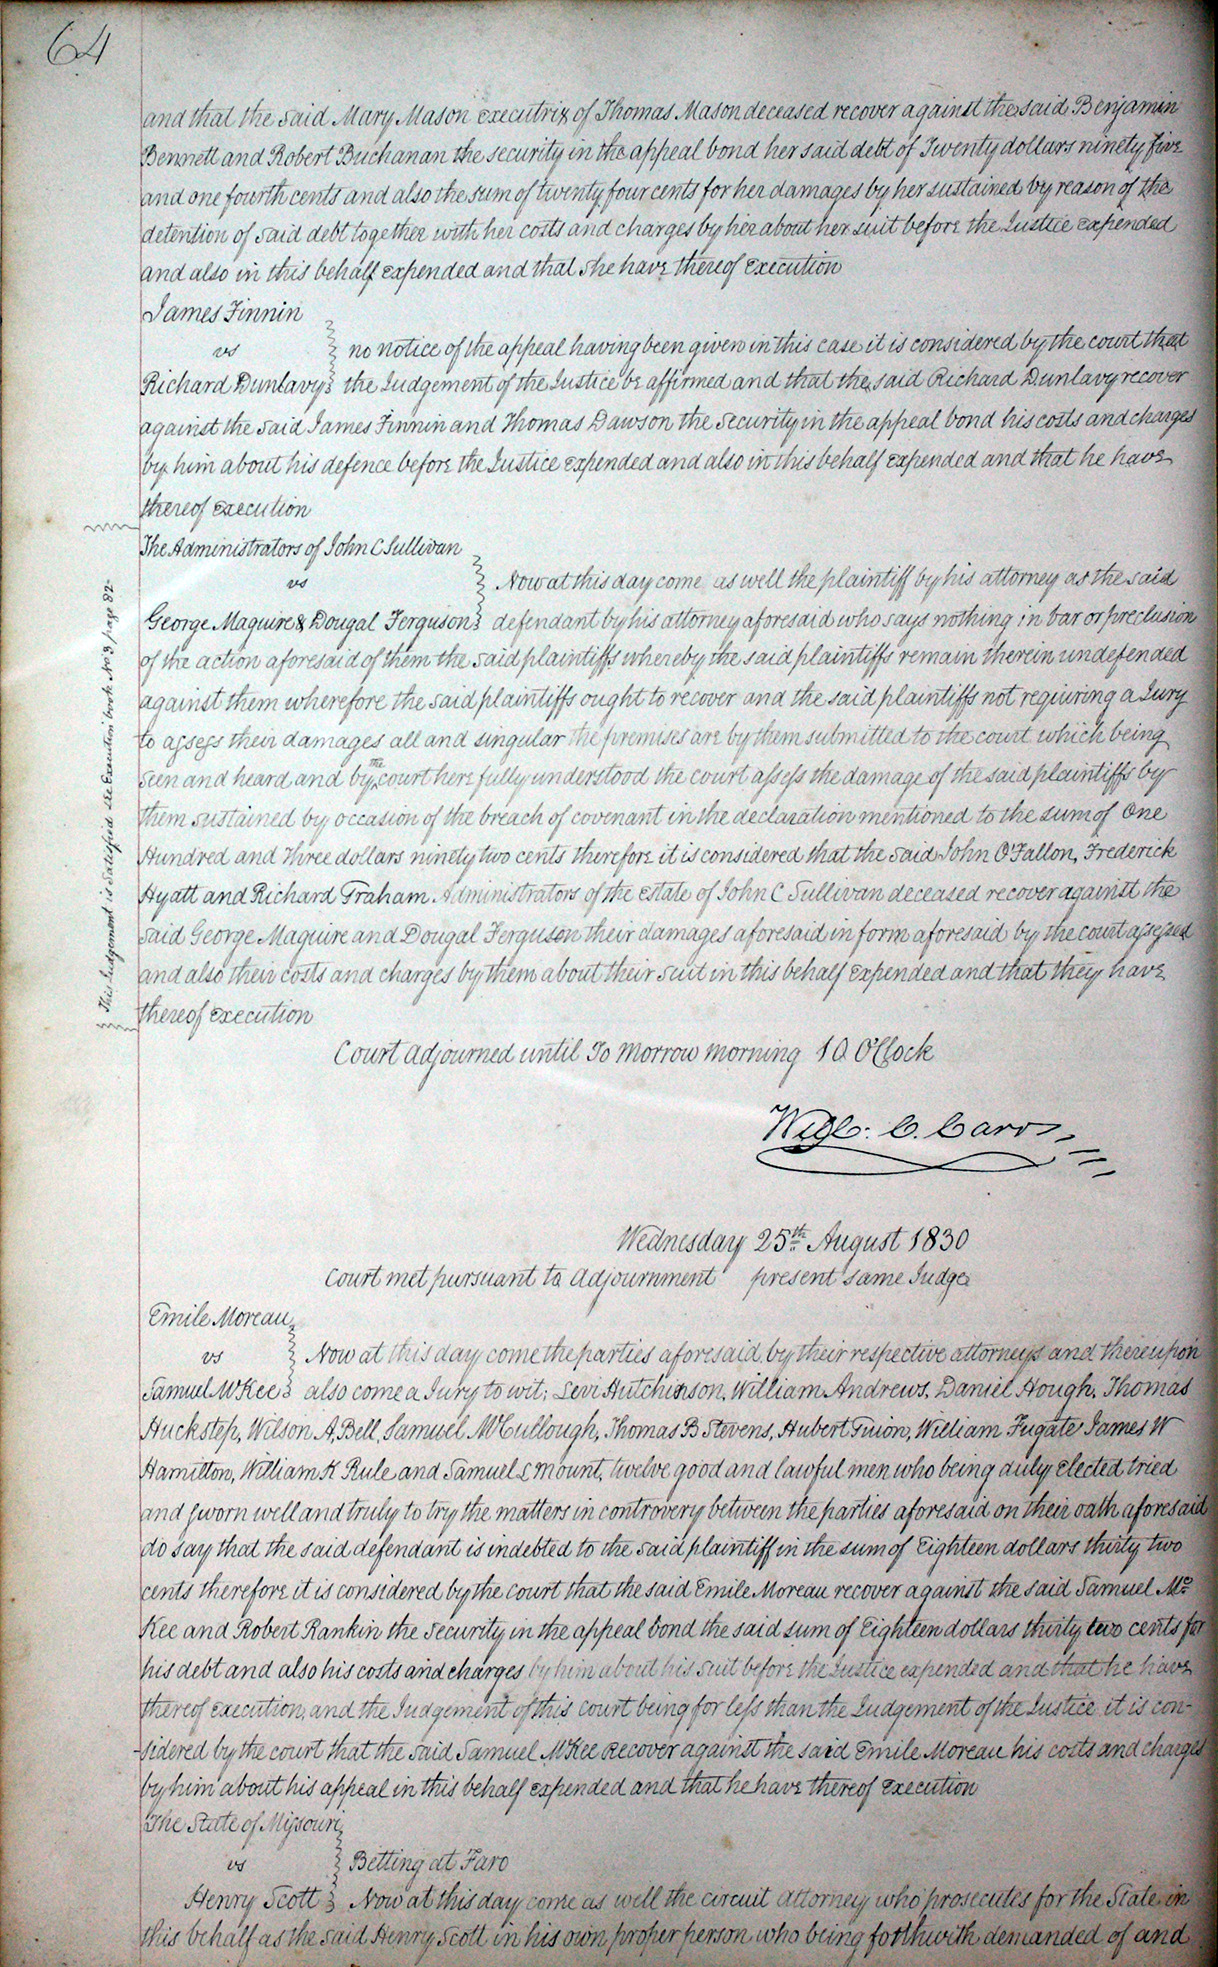 64
and that the said Mary Mason executrix of Thomas Mason deceased recover against the said Benjamin
Bennett and Robert Buchanan the security in the appeal bond her said debt of Twenty dollars ninety five
and one fourth cents and also the sum of twenty four cents for her damages by her sustained by reason of the
detention of said debt together with her costs and charges by her about her suit before the Justice expended
and also in this behalf expended and that she have thereof execution
James Finnin
vs
no notice of the appeal having been given in this case it is considered by the court that
Richard Dunlavy the Judgement of the Justice be affirmed and that the said Richard Dunlavy recover
against the said James Finnin and Thomas Dawson the security in the appeal bond his costs and charges
by him about his defence before the Justice expended and also in this behalf expended and that he have
thereof execution
The Administrators of John C Sullivan
vs
Now at this day come as well the plaintiff by his attorney as the said
George Maguire & Dougal Ferguson defendant by his attorney aforesaid who says nothing in bar or preclusion
of the action aforesaid of them the said plaintiffs whereby the said plaintiffs remain therein undefended
against them wherefore the said plaintiffs ought to recover and the said plaintiffs not requiring a Jury
to assess their damages all and singular the premises are by them submitted to the court which being
seen and heard and by the court here fully understood the court assess the damage of the said plaintiffs by
them sustained by occasion of the breach of covenant in the declaration mentioned to the sum of One
Hundred and Three dollars ninety two cents therefore it is considered that the said John O'Fallon, Frederick
Hyatt and Richard Graham Administrators of the estate of John C Sullivan deceased recover against the
said George Maguire and Dougal Ferguson their damages aforesaid in form aforesaid by the court assessed
and also their costs and charges by them about their suit in this behalf expended and that they have
thereof execution
This Judgement is satisfied see Execution book No 3 page 82
Court adjourned until To Morrow morning 10 O'Clock
Will: C. Carr
Wednesday 25th August 1830
Court met pursuant to Adjournment present same Judge
Emile Moreau
vs
Now at this day come the parties aforesaid by their respective attorneys and thereupon
Samuel McKee also come a Jury to wit; Levi Hutchinson, William Andrews, Daniel Hough, Thomas
Huckstep, Wilson A. Bell, Samuel McCullough, Thomas B Stevens, Hubert Guion, William Fugate James W
Hamilton, William K Rule and Samuel L mount, twelve good and lawful men who being duly elected tried
and sworn well and truly to try the matters in controvery between the parties aforesaid on their oath aforesaid
do say that the said defendant is indebted to the said plaintiff in the sum of Eighteen dollars thirty two
cents therefore it is considered by the court that the said Emile Moreau recover against the said Samuel Mc
Kee and Robert Rankin the security in the appeal bond the said sum of Eighteen dollars thirty two cents for
his debt and also his costs and charges by him about his suit before the Justice expended and that he have
thereof execution, and the Judgement of this court being for less than the Judgement of the Justice it is con-
-sidered by the court that the said Samuel McKee recover against the said Emile Moreau his costs and charges
by him about his appeal in this behalf expended and that he have thereof execution
The State of Missouri
vs
Betting at Faro
Henry Scott Now at this day come as well the circuit Attorney who prosecutes for the State in
this behalf as the said Henry Scott in his own proper person who being forthwith demanded of and